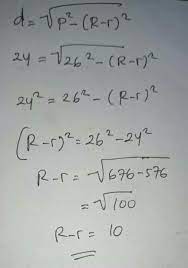 d = √P² - (R-r)²
24 = √26² - (R-r)²
24² = 26² - (R-r)²
(R-r)² = 26² - 24²
R-r = √676-576
= √100
R-r = 10